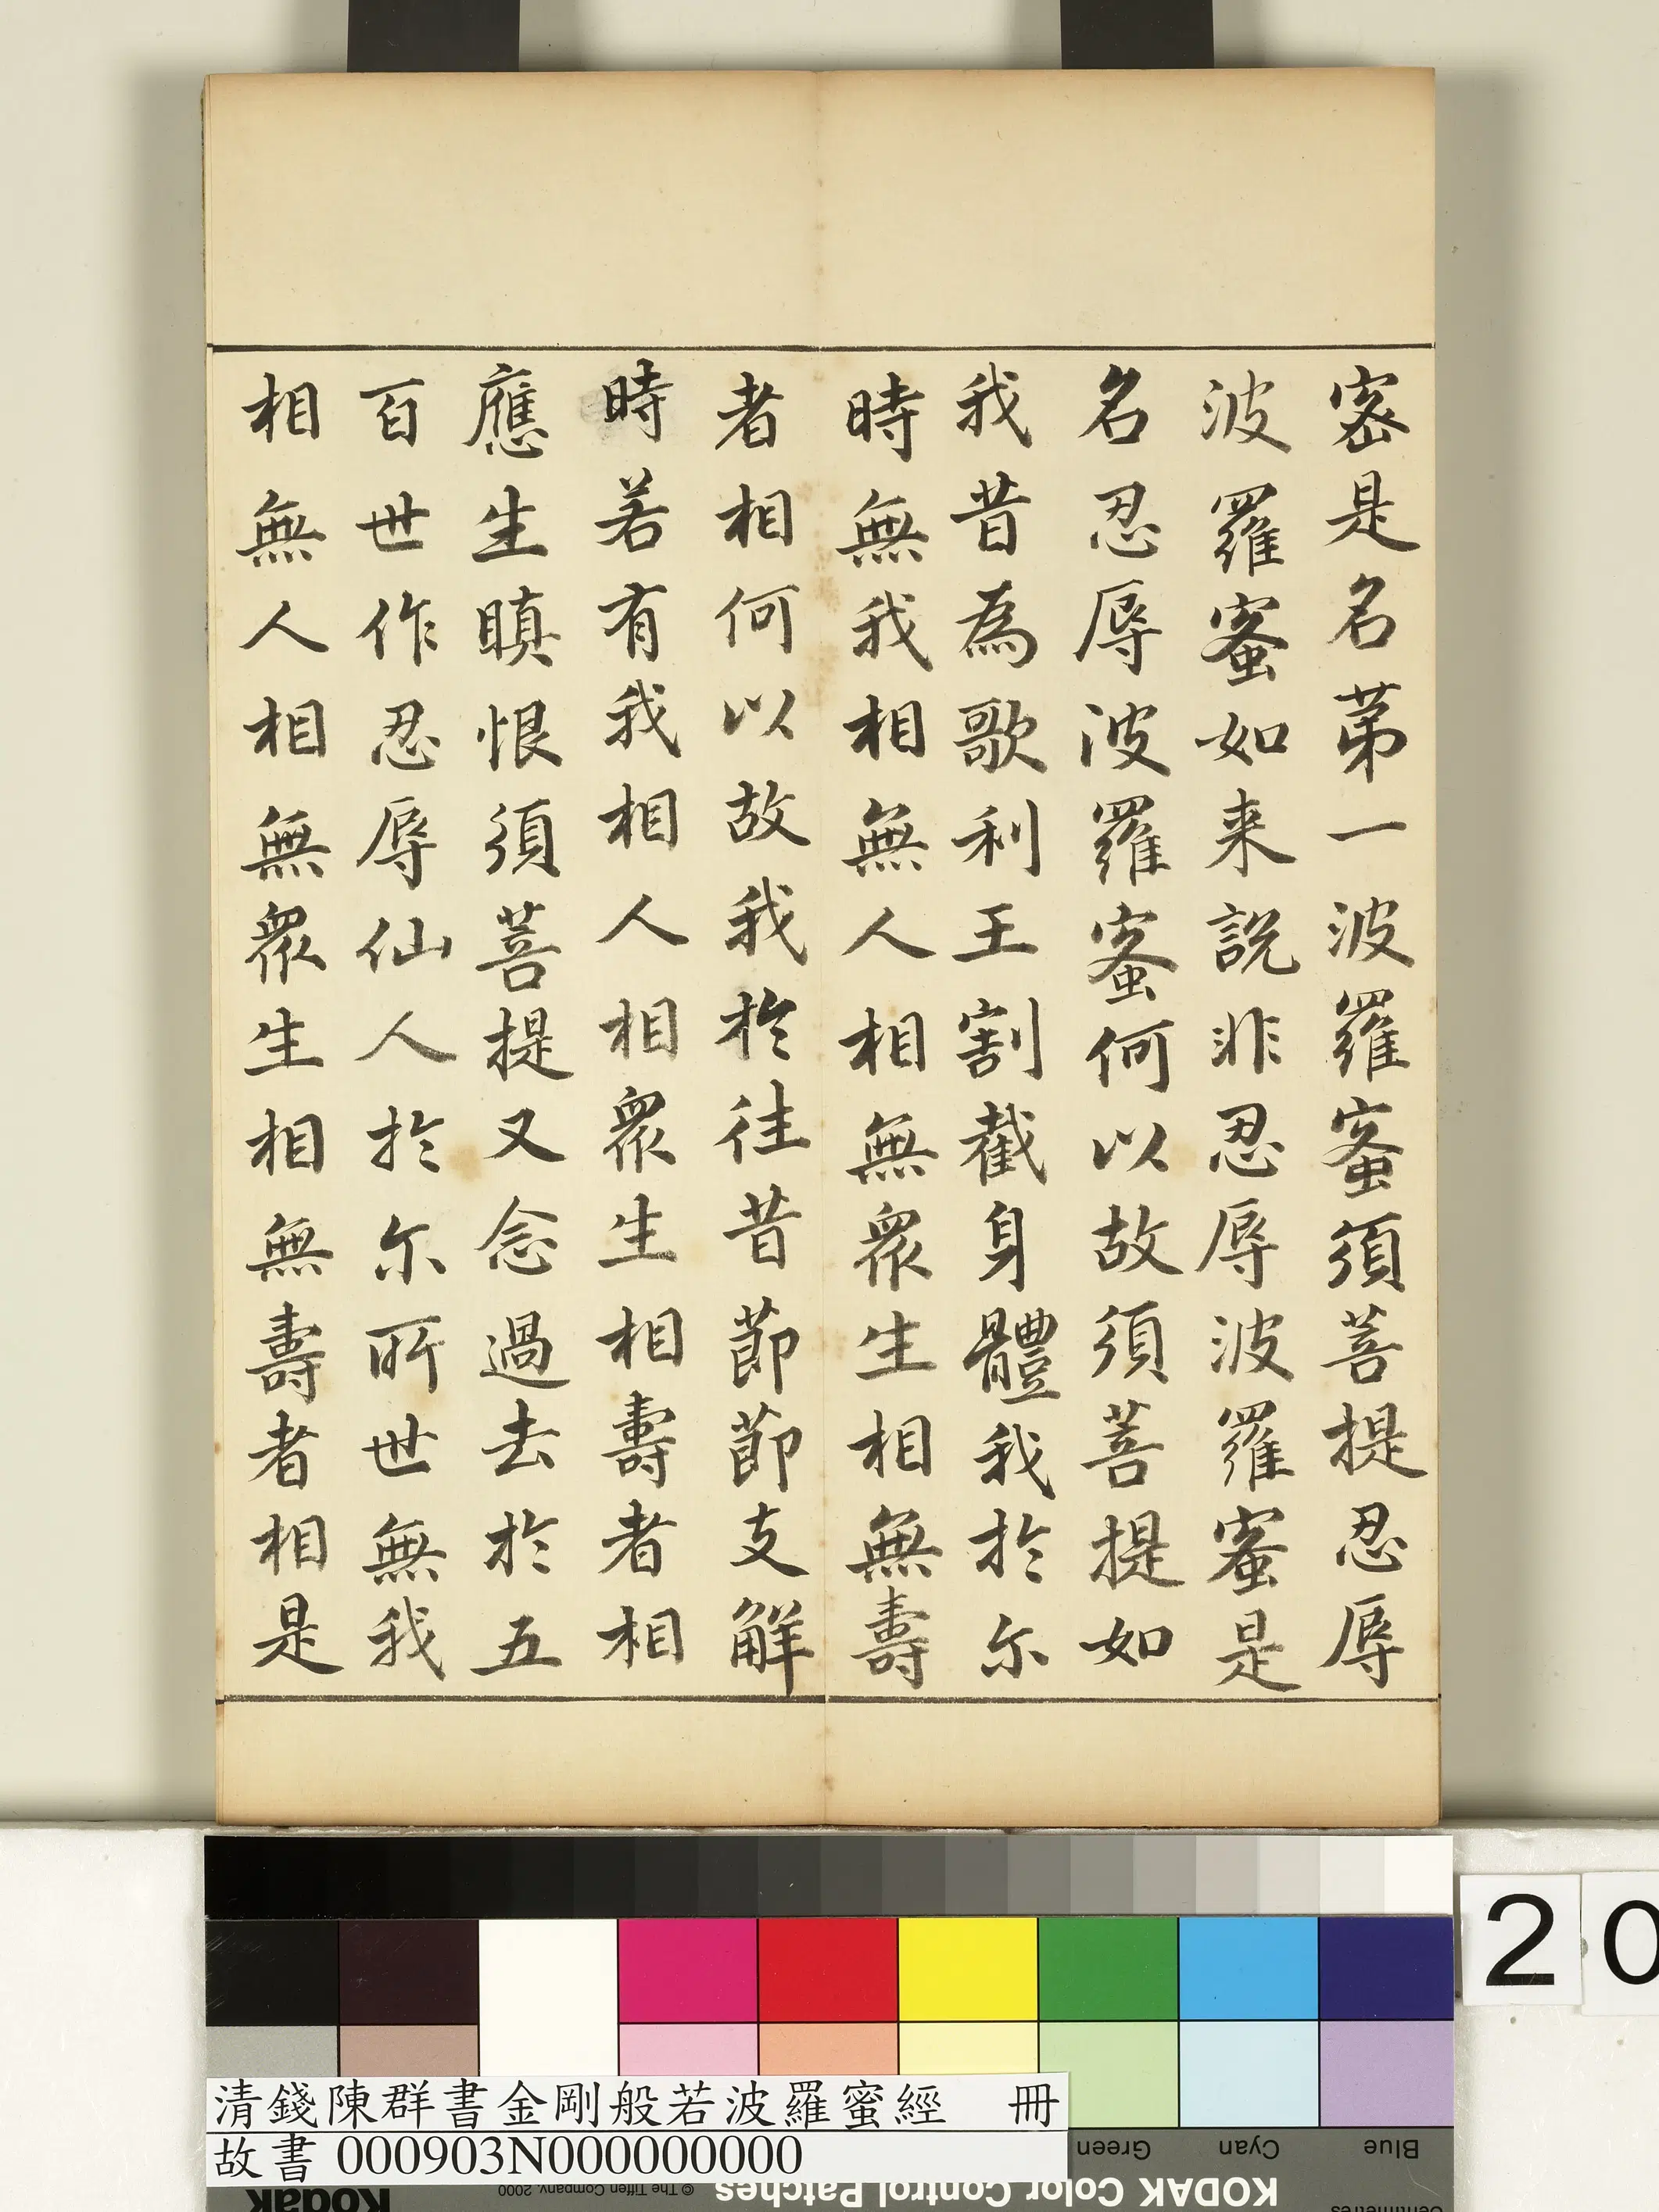 密是名苐一波羅蜜須菩提忍辱
波羅蜜如来說非忍辱波羅蜜是
名忍辱波羅蜜何以故須菩提如
我昔為歌利王割截身體我於尓
時無我相無人相無眾生相無壽
者相何以故我於往昔節節支解
時若有我相人相眾生相壽者相
應生瞋恨須菩提又念過去於五
百世作忍辱仙人於尓所世無我
相無人相無眾生相無壽者相是
20
清錢陳群書金剛般若波羅蜜經 冊
故書 000903N000000000
Blue
Cyan
Green
Centimetres
KODAK Color Control Patches
© The Tiffen Company, 2000
Kodak